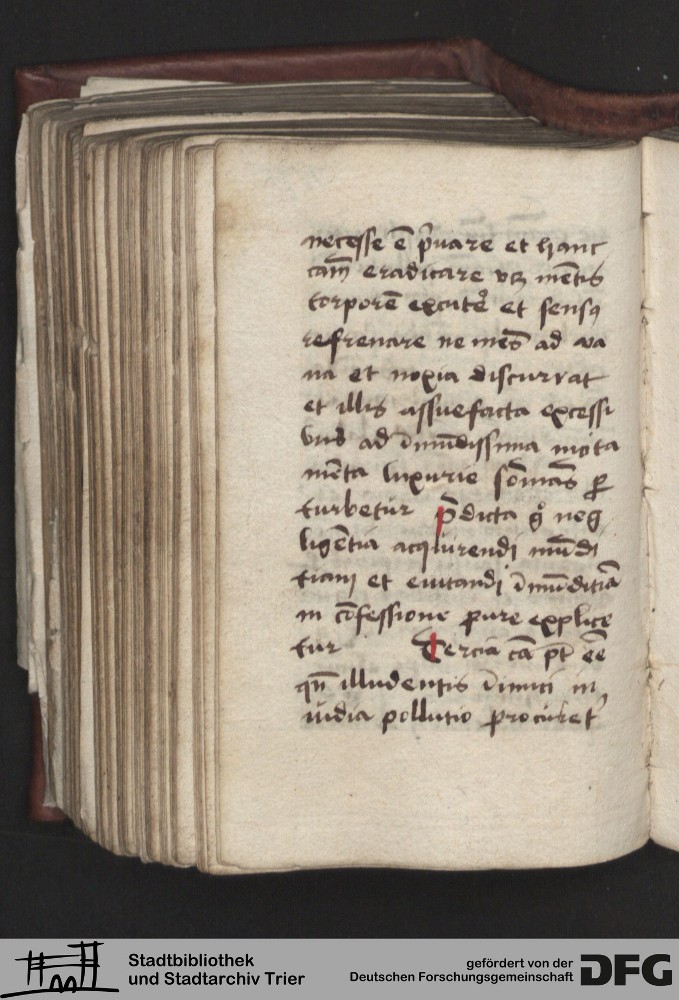 necesse ē p̾uare et hanc
cām eradicare vꝫ mētis
torporē excute᷒ et sensꝯ
refrenare ne mēs ad va
na et noxia discurrat
et illis assuefacta excessi
vus ad īmūdissima mota
menta luxurie sōmās ꝑ
turbetur p̄dicta gͦ neg
ligētia acquirendi mūdi
ciam et euitandi īmūditiā
in cōfessione pure explice
tur Tercia cā pt̄ eē
qn̄ illudentis īimici in
uidia pollutio procuret᷒
Stadtbibliothek
und Stadtarchiv Trier
gefördert von der
Deutschen Forschungsgemeinschaft
DFG